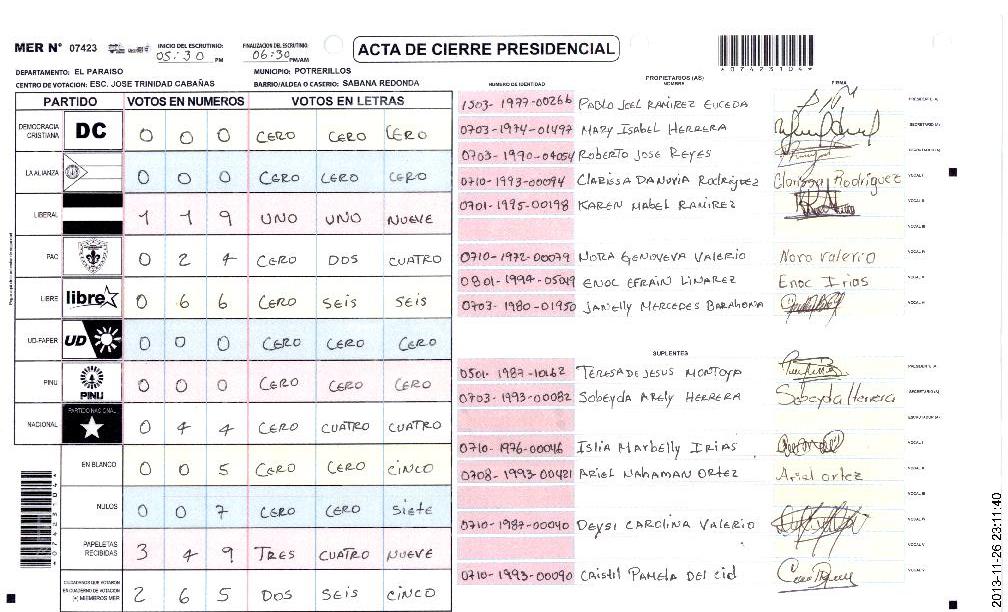 MER N° 07423 INICIO DEL ESCRUTINIO: 05:30 PM FINALIZACION DEL ESCRUTINIO: 06:30 PM/AM ACTA DE CIERRE PRESIDENCIAL
DEPARTAMENTO: EL PARAISO MUNICIPIO: POTRERILLOS
CENTRO DE VOTACION: ESC. JOSE TRINIDAD CABAÑAS BARRIO/ALDEA O CASERIO: SABANA REDONDA
PARTIDO VOTOS EN NUMEROS VOTOS EN LETRAS
DEMOCRACIA CRISTIANA DC 0 0 0 CERO CERO CERO
LA ALIANZA 0 0 0 CERO CERO CERO
LIBERAL 1 1 9 UNO UNO NUEVE
PAC 0 2 4 CERO DOS CUATRO
LIBRE libre 0 6 6 CERO SEIS SEIS
UD-FAPER UD 0 0 0 CERO CERO CERO
PINU PINU 0 0 0 CERO CERO CERO
NACIONAL PARTIDO NACIONAL 0 4 4 CERO CUATRO CUATRO
EN BLANCO 0 0 5 CERO CERO CINCO
NULOS 0 0 7 CERO CERO SIETE
PAPELETAS RECIBIDAS 3 4 9 TRES CUATRO NUEVE
CIUDADANOS QUE VOTARON EN CUADERNO DE VOTACION (+) MIEMBROS MER 2 6 5 DOS SEIS CINCO
PROPIETARIOS (AS)
NUMERO DE IDENTIDAD NOMBRE FIRMA
1503-1977-00266 PABLO JOEL RAMIREZ EUCEDA
0703-1974-01497 MARY ISABEL HERRERA
0703-1990-04054 ROBERTO JOSE REYES
0710-1993-00094 CLARISSA DANUVIA RODRIGUEZ Clarissa Rodriguez
0701-1995-00198 KAREN MABEL RAMIREZ
0710-1972-00079 NORA GENOVEVA VALERIO Nora Valerio
0801-1994-05049 ENOC EFRAIN LINAREZ Enoc Irias
0703-1980-01950 JANIELLY MERCEDES BARAHONA
SUPLENTES
0501-1987-10162 TERESA DE JESUS MONTOYA
0703-1993-00082 SOBEYDA ARELY HERRERA Sobeyda Herrera
0710-1976-00046 ISLIA MARBELLY IRIAS
0708-1993-00421 ARIEL NAHAMAN ORTEZ Ariel ortez
0710-1987-00040 DEYSI CAROLINA VALERIO
0710-1993-00090 CRISTIL PAMELA DEL CID
2013-11-26 23:11:40